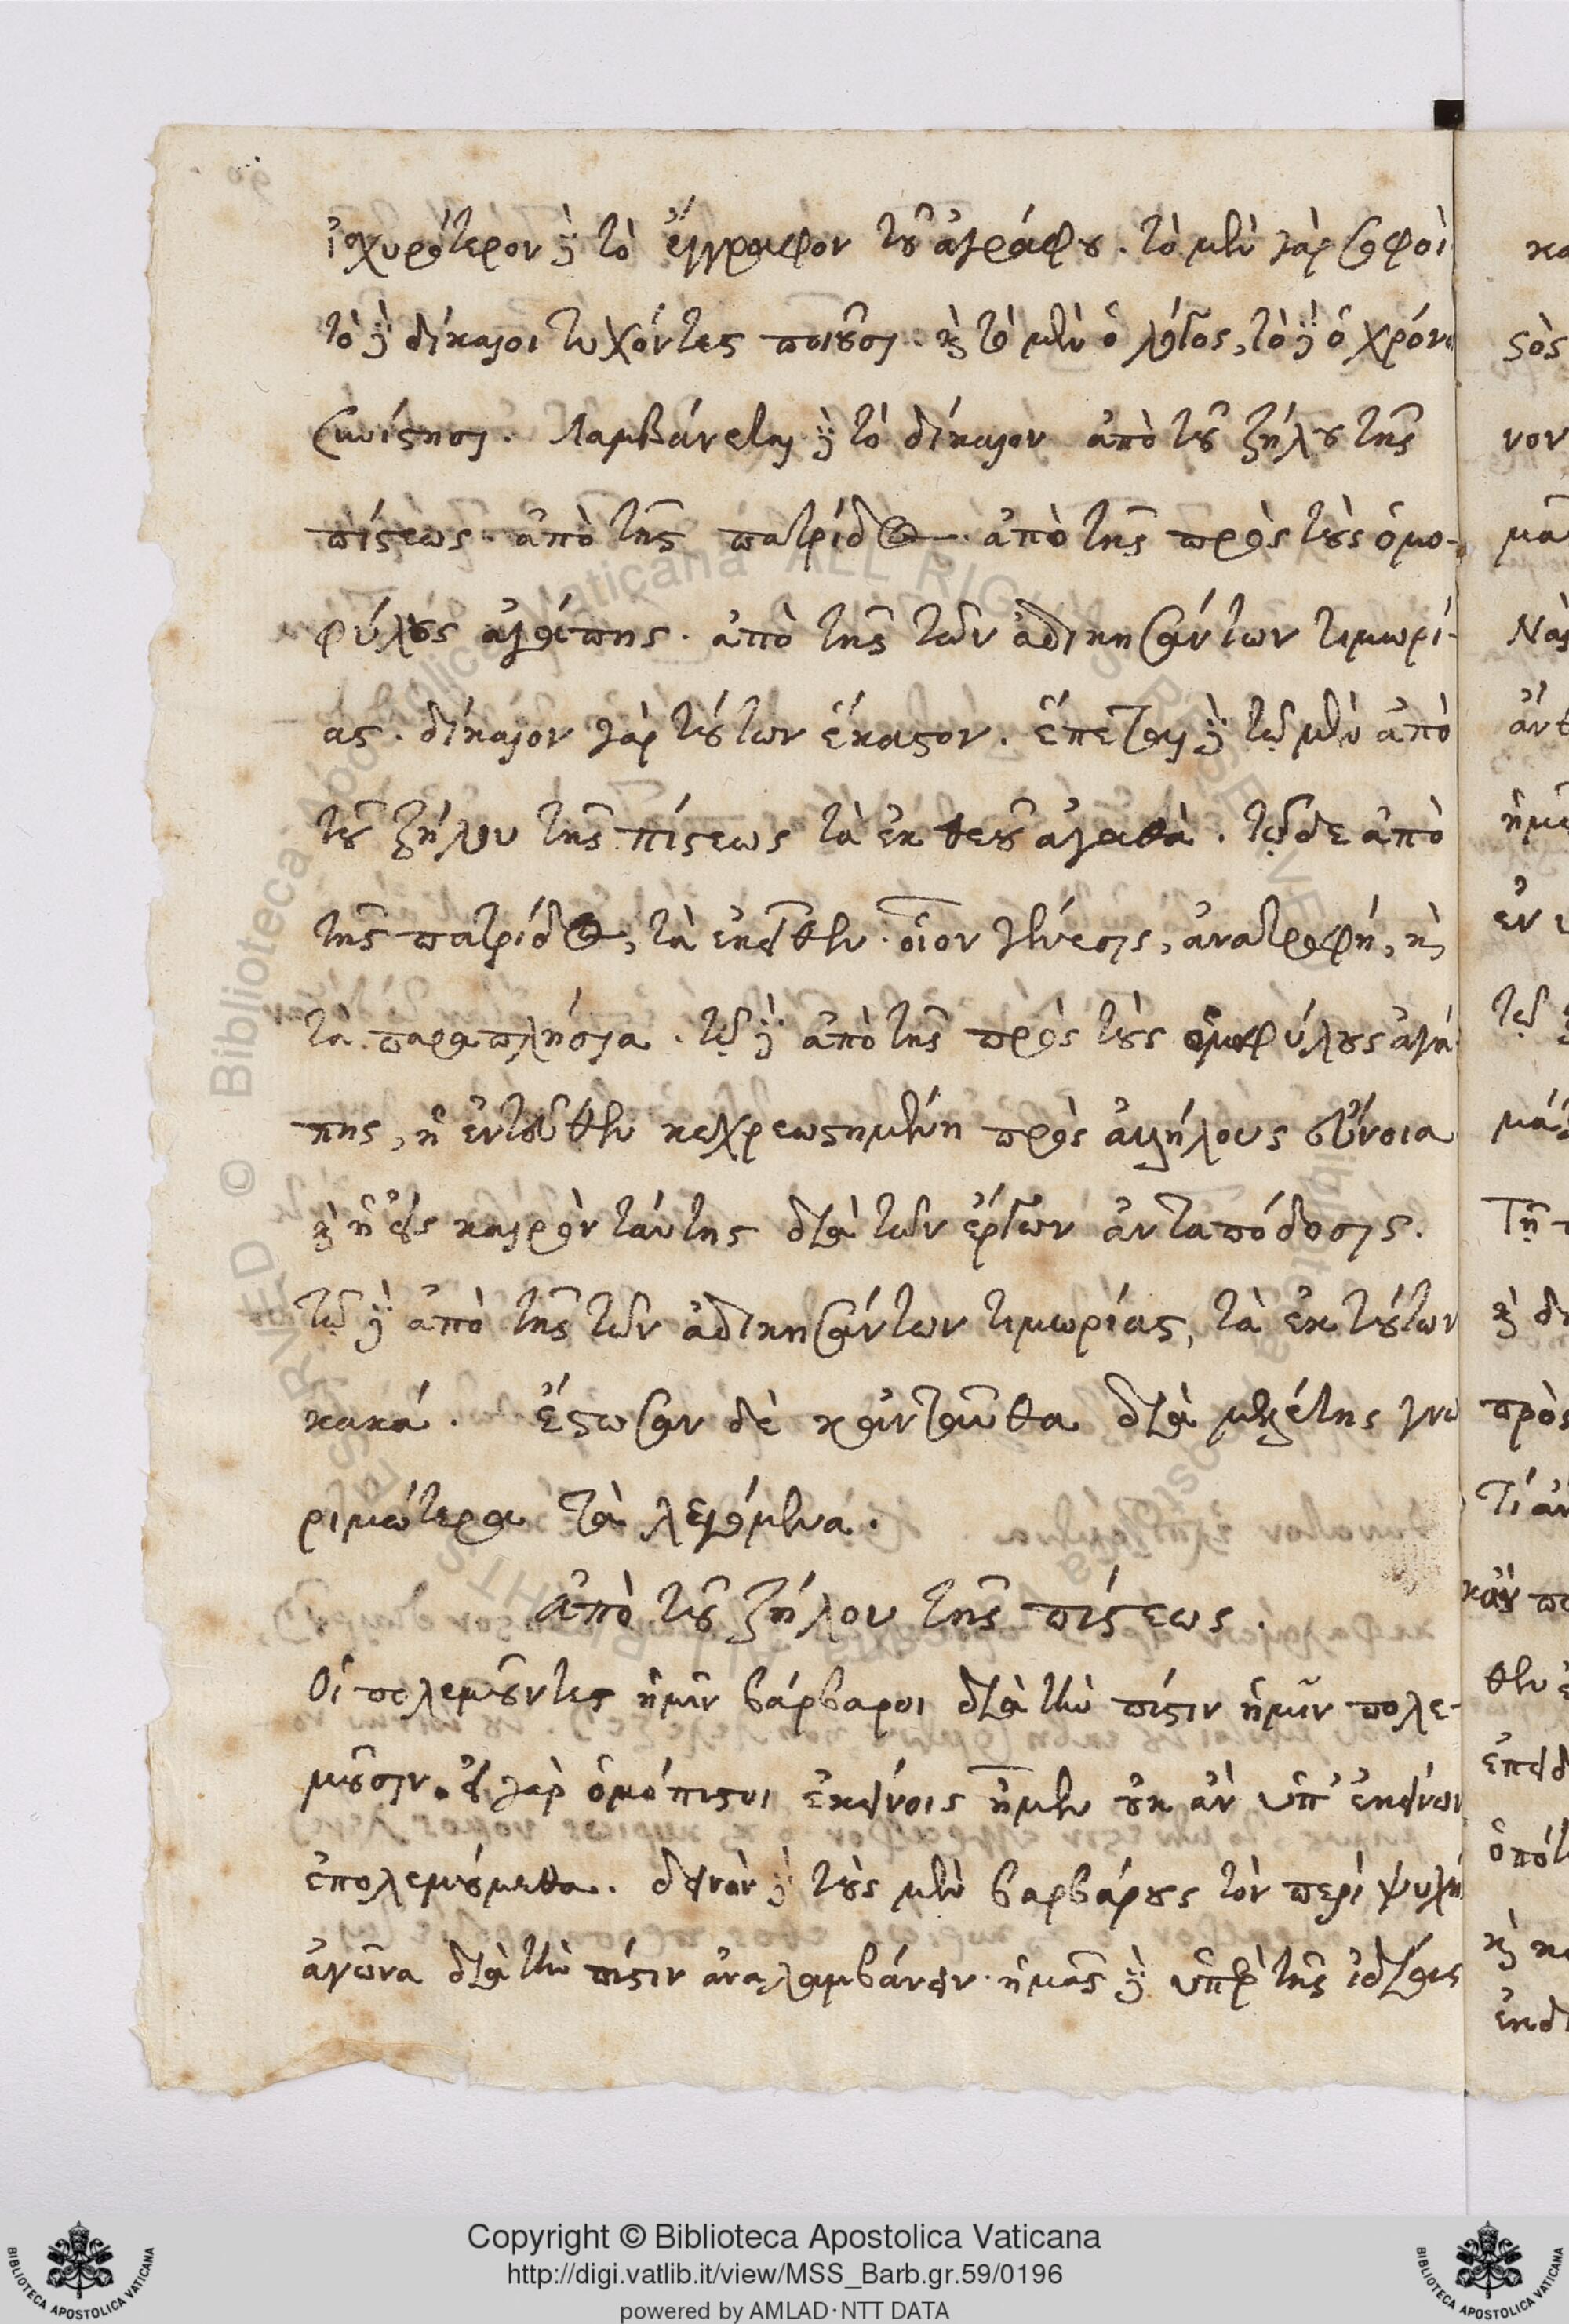 ἰσχυρότερον δὲ τὸ ἔγγραφον τοῦ ἀγράφου. τὸ μὲν γὰρ σοφοὶ
τὸ δὲ δίκαιοι τυχόντες ποιοῦσι. καὶ τὸ μὲν ὁ λόγος, τὸ δὲ ὁ χρόνο
συνίστησι. Λαμβάνεται δὲ τὸ δίκαιον ἀπὸ τοῦ ζήλου τῆς
πίστεως. ἀπὸ τῆς πατρίδος. ἀπὸ τῆς πρὸς τοὺς ὁμο-
φύλους ἀγάπης. ἀπὸ τῆς τῶν ἀδικησάντων τιμωρί-
ας. δίκαιον γὰρ τούτων ἕκαστον. ἕπεται δὲ τῷ μὲν ἀπὸ
τοῦ ζήλου τῆς πίστεως τὰ ἐκ θεοῦ ἀγαθά. τῷ δε ἀπὸ
τῆς πατρίδος, τὰ ἐκεῖθεν. οἷον γένεσις, ἀνατροφή, καὶ
τὰ παραπλήσια. τῷ δὲ ἀπὸ τῆς πρὸς τοὺς ὁμοφύλους ἀγά
πης, ἡ ἐντεῦθεν κεχρεωστημένη πρὸς ἀλλήλους εὔνοια
καὶ ἡ εἰς καιρὸν ταύτης διὰ τῶν ἔργων ἀνταπόδοσις.
τῷ δὲ ἀπὸ τῆς τῶν ἀδικησάντων τιμωρίας, τὰ ἐκ τούτων
κακά. ἔστωσαν δὲ κἀνταῦθα διὰ μελέτης γνω
ριμώτερα τὰ λεγόμενα.
ἀπὸ τοῦ ζήλου τῆς πίστεως.
Οἱ πολεμοῦντες ἡμῖν βάρβαροι διὰ τὴν πίστιν ἡμῖν πολε-
μοῦσιν. εἰ γὰρ ὁμόπιστοι ἐκείνοις ἦμεν οὐκ ἂν ὑπ' ἐκείνων
ἐπολεμούμεθα. δεινὸν δὲ τοὺς μὲν βαρβάρους τὸν περὶ ψυχῆ
ἀγῶνα διὰ τὴν πίστιν ἀναλαμβάνειν. ἡμᾶς δὲ ὑπὲρ τῆς ἰδίας
Copyright © Biblioteca Apostolica Vaticana
http://digi.vatlib.it/view/MSS_Barb.gr.59/0196
powered by AMLAD·NTT DATA